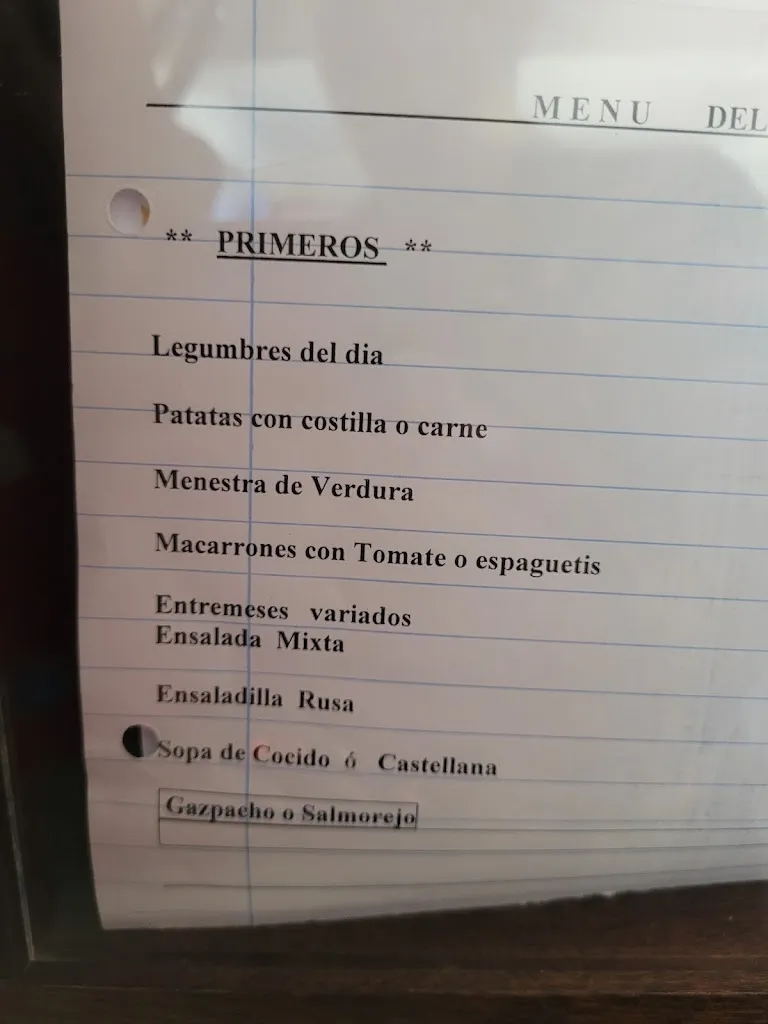 MENU DEL
** PRIMEROS **
Legumbres del dia
Patatas con costilla o carne
Menestra de Verdura
Macarrones con Tomate o espaguetis
Entremeses variados
Ensalada Mixta
Ensaladilla Rusa
Sopa de Cocido ó Castellana
Gazpacho o Salmorejo